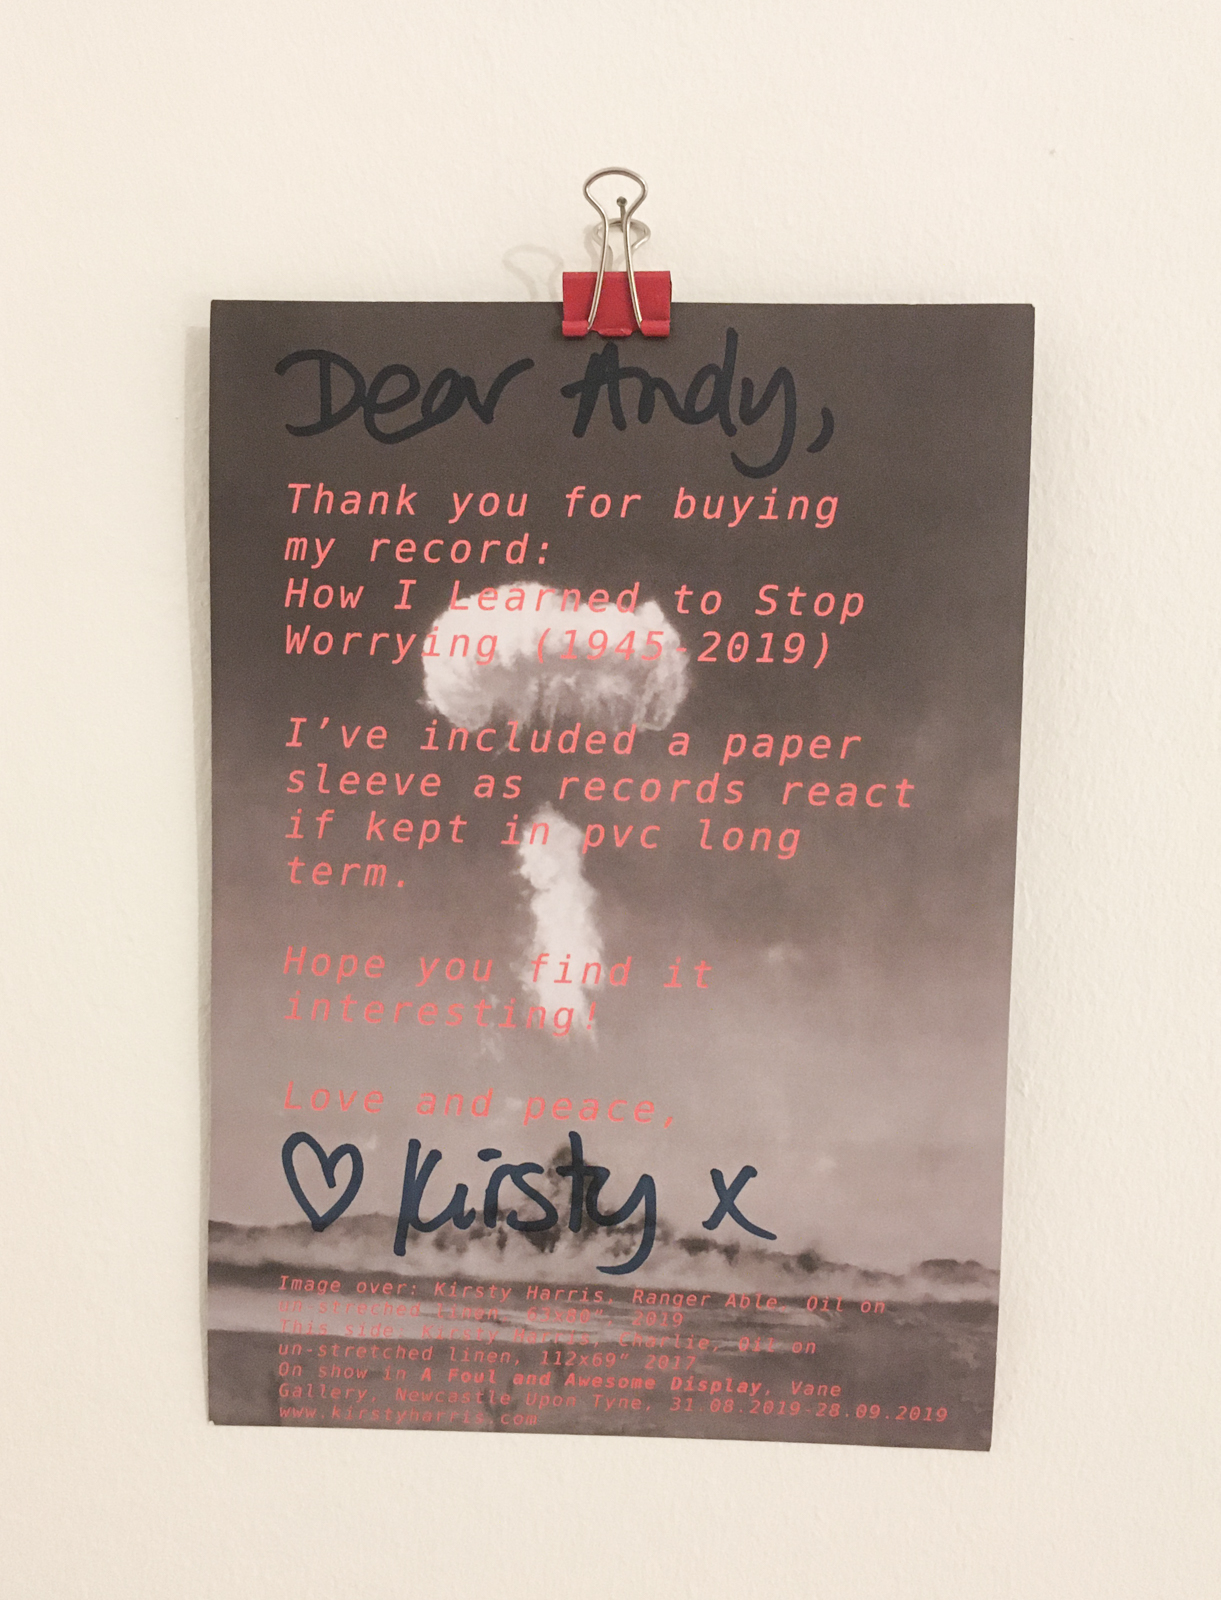 Dear Andy,
Thank you for buying
my record:
How I Learned to Stop
Worrying (1945-2019)
I've included a paper
sleeve as records react
if kept in pvc long
term.
Hope you find it
interesting!
Love and peace,
Kirsty x
Image over: Kirsty Harris, Ranger Able, Oil on
un-streched linen, 63x80", 2019
This side: Kirsty Harris, Charlie, Oil on
un-stretched linen, 112x69" 2017
On show in A Foul and Awesome Display, Vane
Gallery, Newcastle Upon Tyne, 31.08.2019-28.09.2019
www.kirstyharris.com